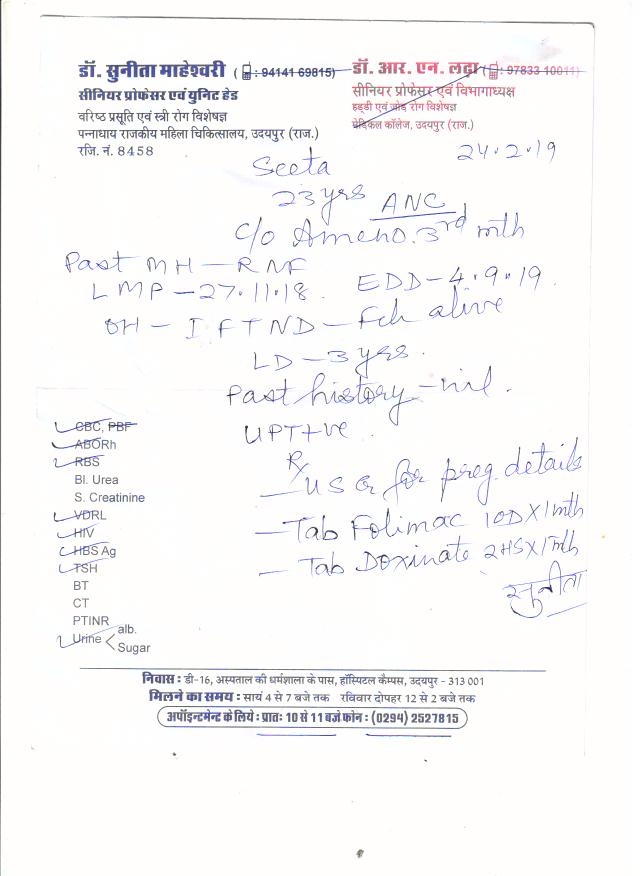 डॉ. सुनीता माहेश्वरी (: 94141 69815)
सीनियर प्रोफेसर एवं युनिट हेड
वरिष्ठ प्रसूति एवं स्त्री रोग विशेषज्ञ
पन्नाधाय राजकीय महिला चिकित्सालय, उदयपुर (राज.)
रजि. नं. 8458
डॉ. आर. एन. लढ़ा (: 97833 10011)
सीनियर प्रोफेसर एवं विभागाध्यक्ष
हड्डी एवं जोड़ रोग विशेषज्ञ
मेडिकल कॉलेज, उदयपुर (राज.)
24.2.19
Seeta
23 yrs
ANC
c/o Ameno. 3rd mth
Past MH - RNF
LMP - 27.11.18. EDD - 4.9.19.
OH - I FTND - Fch alive
LD - 3 yrs.
Past history - nil.
UPT +ve
Rx
- USG for preg. details
- Tab Folimac 1OD X 1 mth
- Tab Doxinate 2HS X 1 mth
सुनीता
CBC, PBF
ABORh
RBS
Bl. Urea
S. Creatinine
VDRL
HIV
HBS Ag
TSH
BT
CT
PTINR
Urine < alb.
Sugar
निवास : डी-16, अस्पताल की धर्मशाला के पास, हॉस्पिटल कैम्पस, उदयपुर - 313 001
मिलने का समय : सायं 4 से 7 बजे तक रविवार दोपहर 12 से 2 बजे तक
अपॉइन्टमेन्ट के लिये : प्रातः 10 से 11 बजे फोन : (0294) 2527815